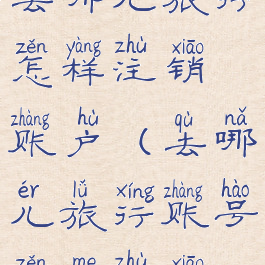 去哪儿旅行
zěn yàng zhù xiāo
怎样注销
zhàng hù qù nǎ
账户（去哪
ér lǚ xíng zhàng hào
儿旅行账号
zěn me zhù xiāo